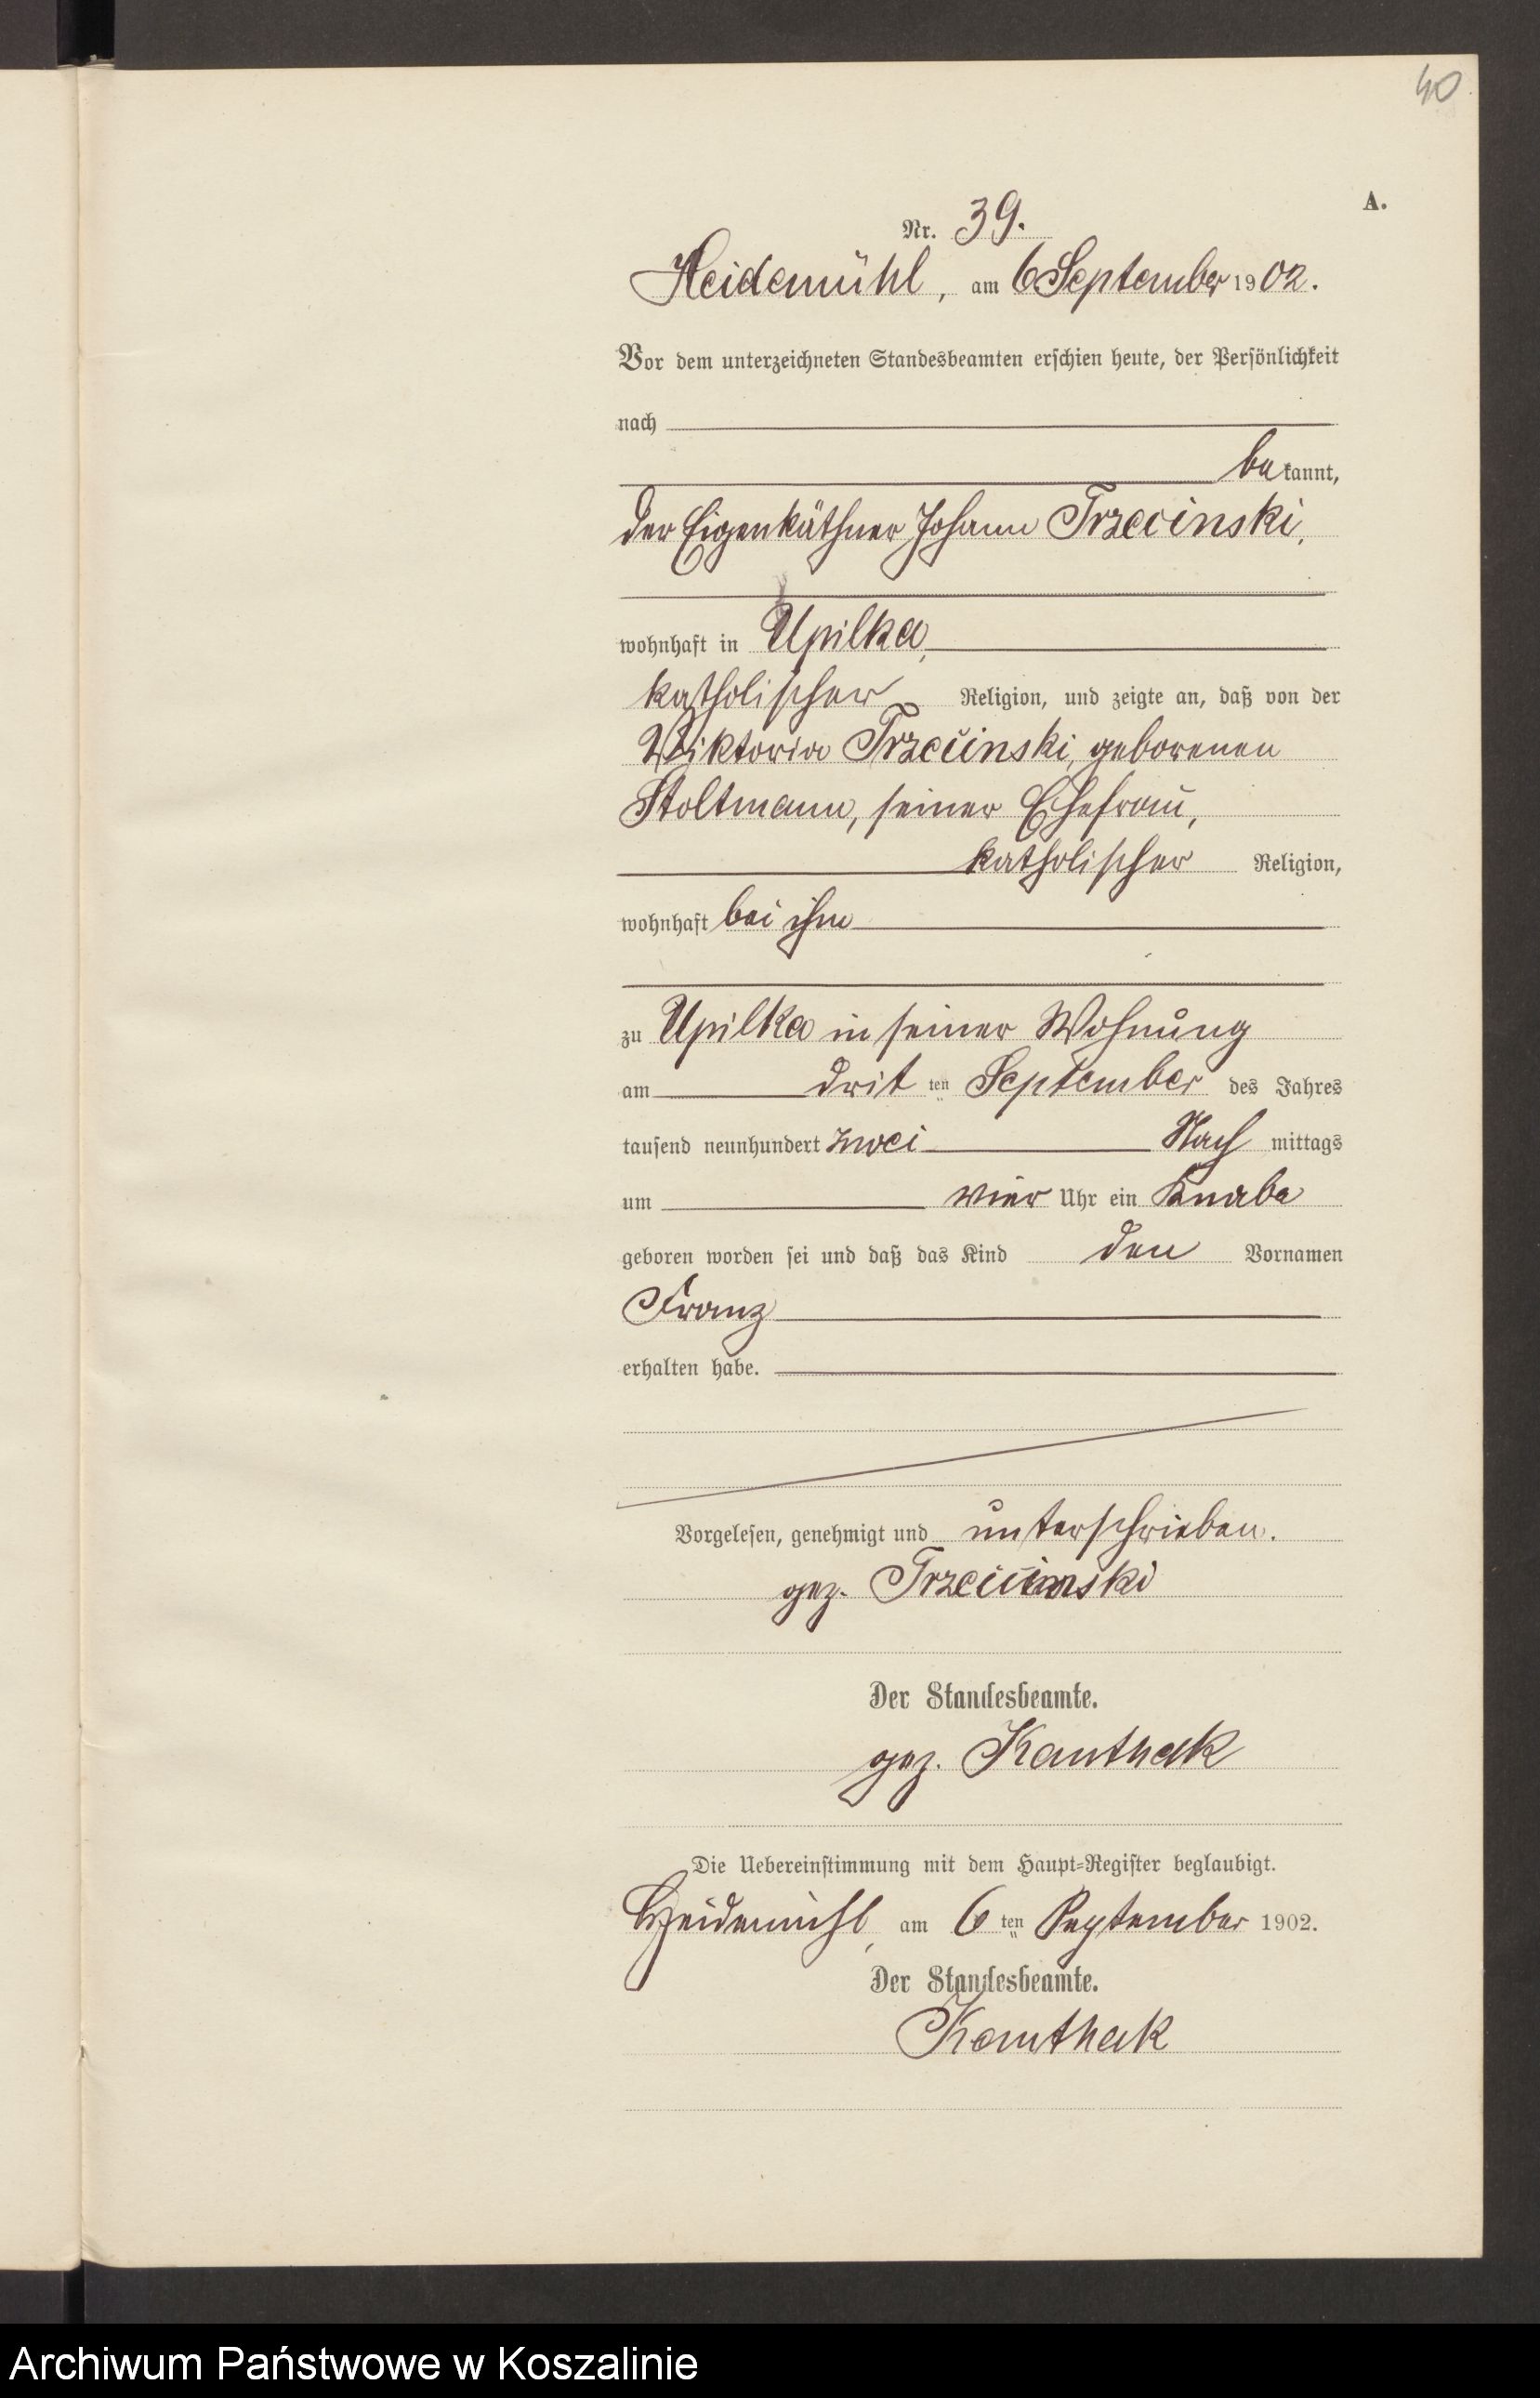 40
A.
Nr. 39.
Heidemühl, am 6 September 1902.
Vor dem unterzeichneten Standesbeamten erschien heute, der Persönlichkeit
nach
bekannt,
der Eigenkäthner Johann Trzecinski,
wohnhaft in Upilka,
katholischer Religion, und zeigte an, daß von der
Wiktoria Trzecinski, geborenen
Stoltmann, seiner Ehefrau,
katholischer Religion,
wohnhaft bei ihm
zu Upilka in seiner Wohnung
am drit ten September des Jahres
tausend neunhundert zwei Nach mittags
um vier Uhr ein Knabe
geboren worden sei und daß das Kind den Vornamen
Franz
erhalten habe.
Vorgelesen, genehmigt und unterschrieben.
gez. Trzecinski
Der Standesbeamte.
gez. Kanthak
Die Uebereinstimmung mit dem Haupt-Register beglaubigt.
Heidemühl, am 6 ten September 1902.
Der Standesbeamte.
Kanthak
Archiwum Państwowe w Koszalinie